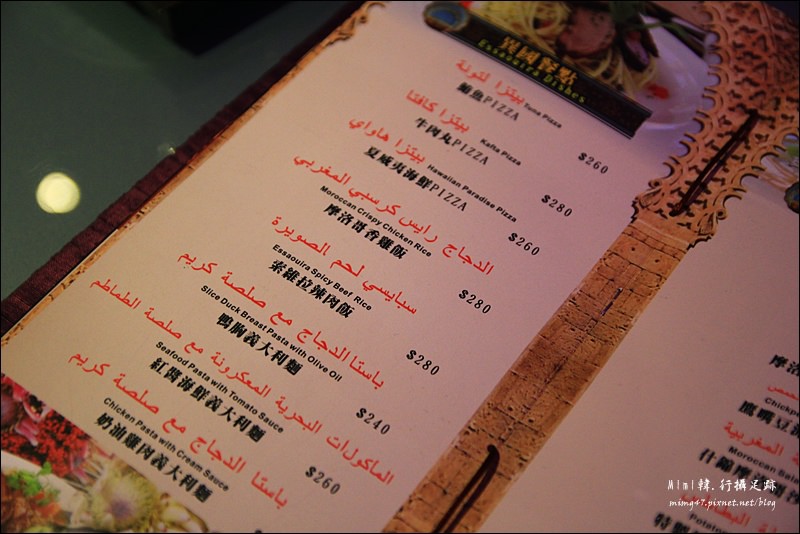 異國餐點
Essaouira Dishes
بيتزا لتونة Tuna Pizza
鮪魚PIZZA $260
بيتزا كافتا Kafta Pizza
牛肉丸PIZZA $280
بيتزا هاواي Hawaiian Paradise Pizza
夏威夷海鮮PIZZA $260
الدجاج رايس كرسبي المغربي
Moroccan Crispy Chicken Rice
摩洛哥香雞飯 $280
سبايسي لحم الصويرة
Essaouira Spicy Beef Rice
索維拉辣肉飯 $280
باستا الدجاج مع صلصة كريم
Slice Duck Breast Pasta with Olive Oil
鴨胸義大利麵 $240
الماكولات البحرية المعكرونة مع صلصة الطماطم
Seafood Pasta with Tomato Sauce
紅醬海鮮義大利麵 $260
باستا الدجاج مع صلصة كريم
Chicken Pasta with Cream Sauce
奶油雞肉義大利麵
摩洛
Chickp
鷹嘴豆
المغربية
Moroccan Sala
什錦摩洛
Potato
特
MINI韓.行攝足跡
mimg47.pixnet.net/blog